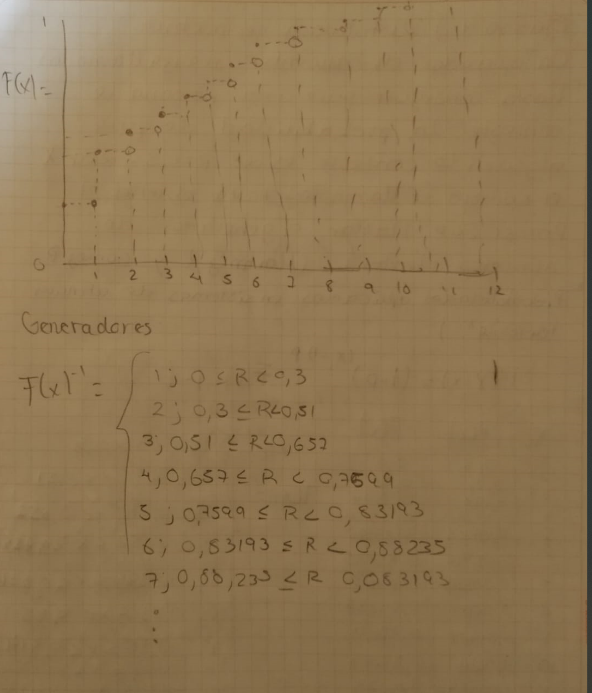 1
F(x)=
0
1 2 3 4 5 6 7 8 9 10 11 12
Generadores
F(x)⁻¹ =
1; 0 ≤ R < 0,3
2; 0,3 ≤ R < 0,51
3; 0,51 ≤ R < 0,657
4, 0,657 ≤ R < 0,7599
5; 0,7599 ≤ R < 0,83193
6; 0,83193 ≤ R < 0,88235
7; 0,88,235 ≤ R 0,083193
⋮